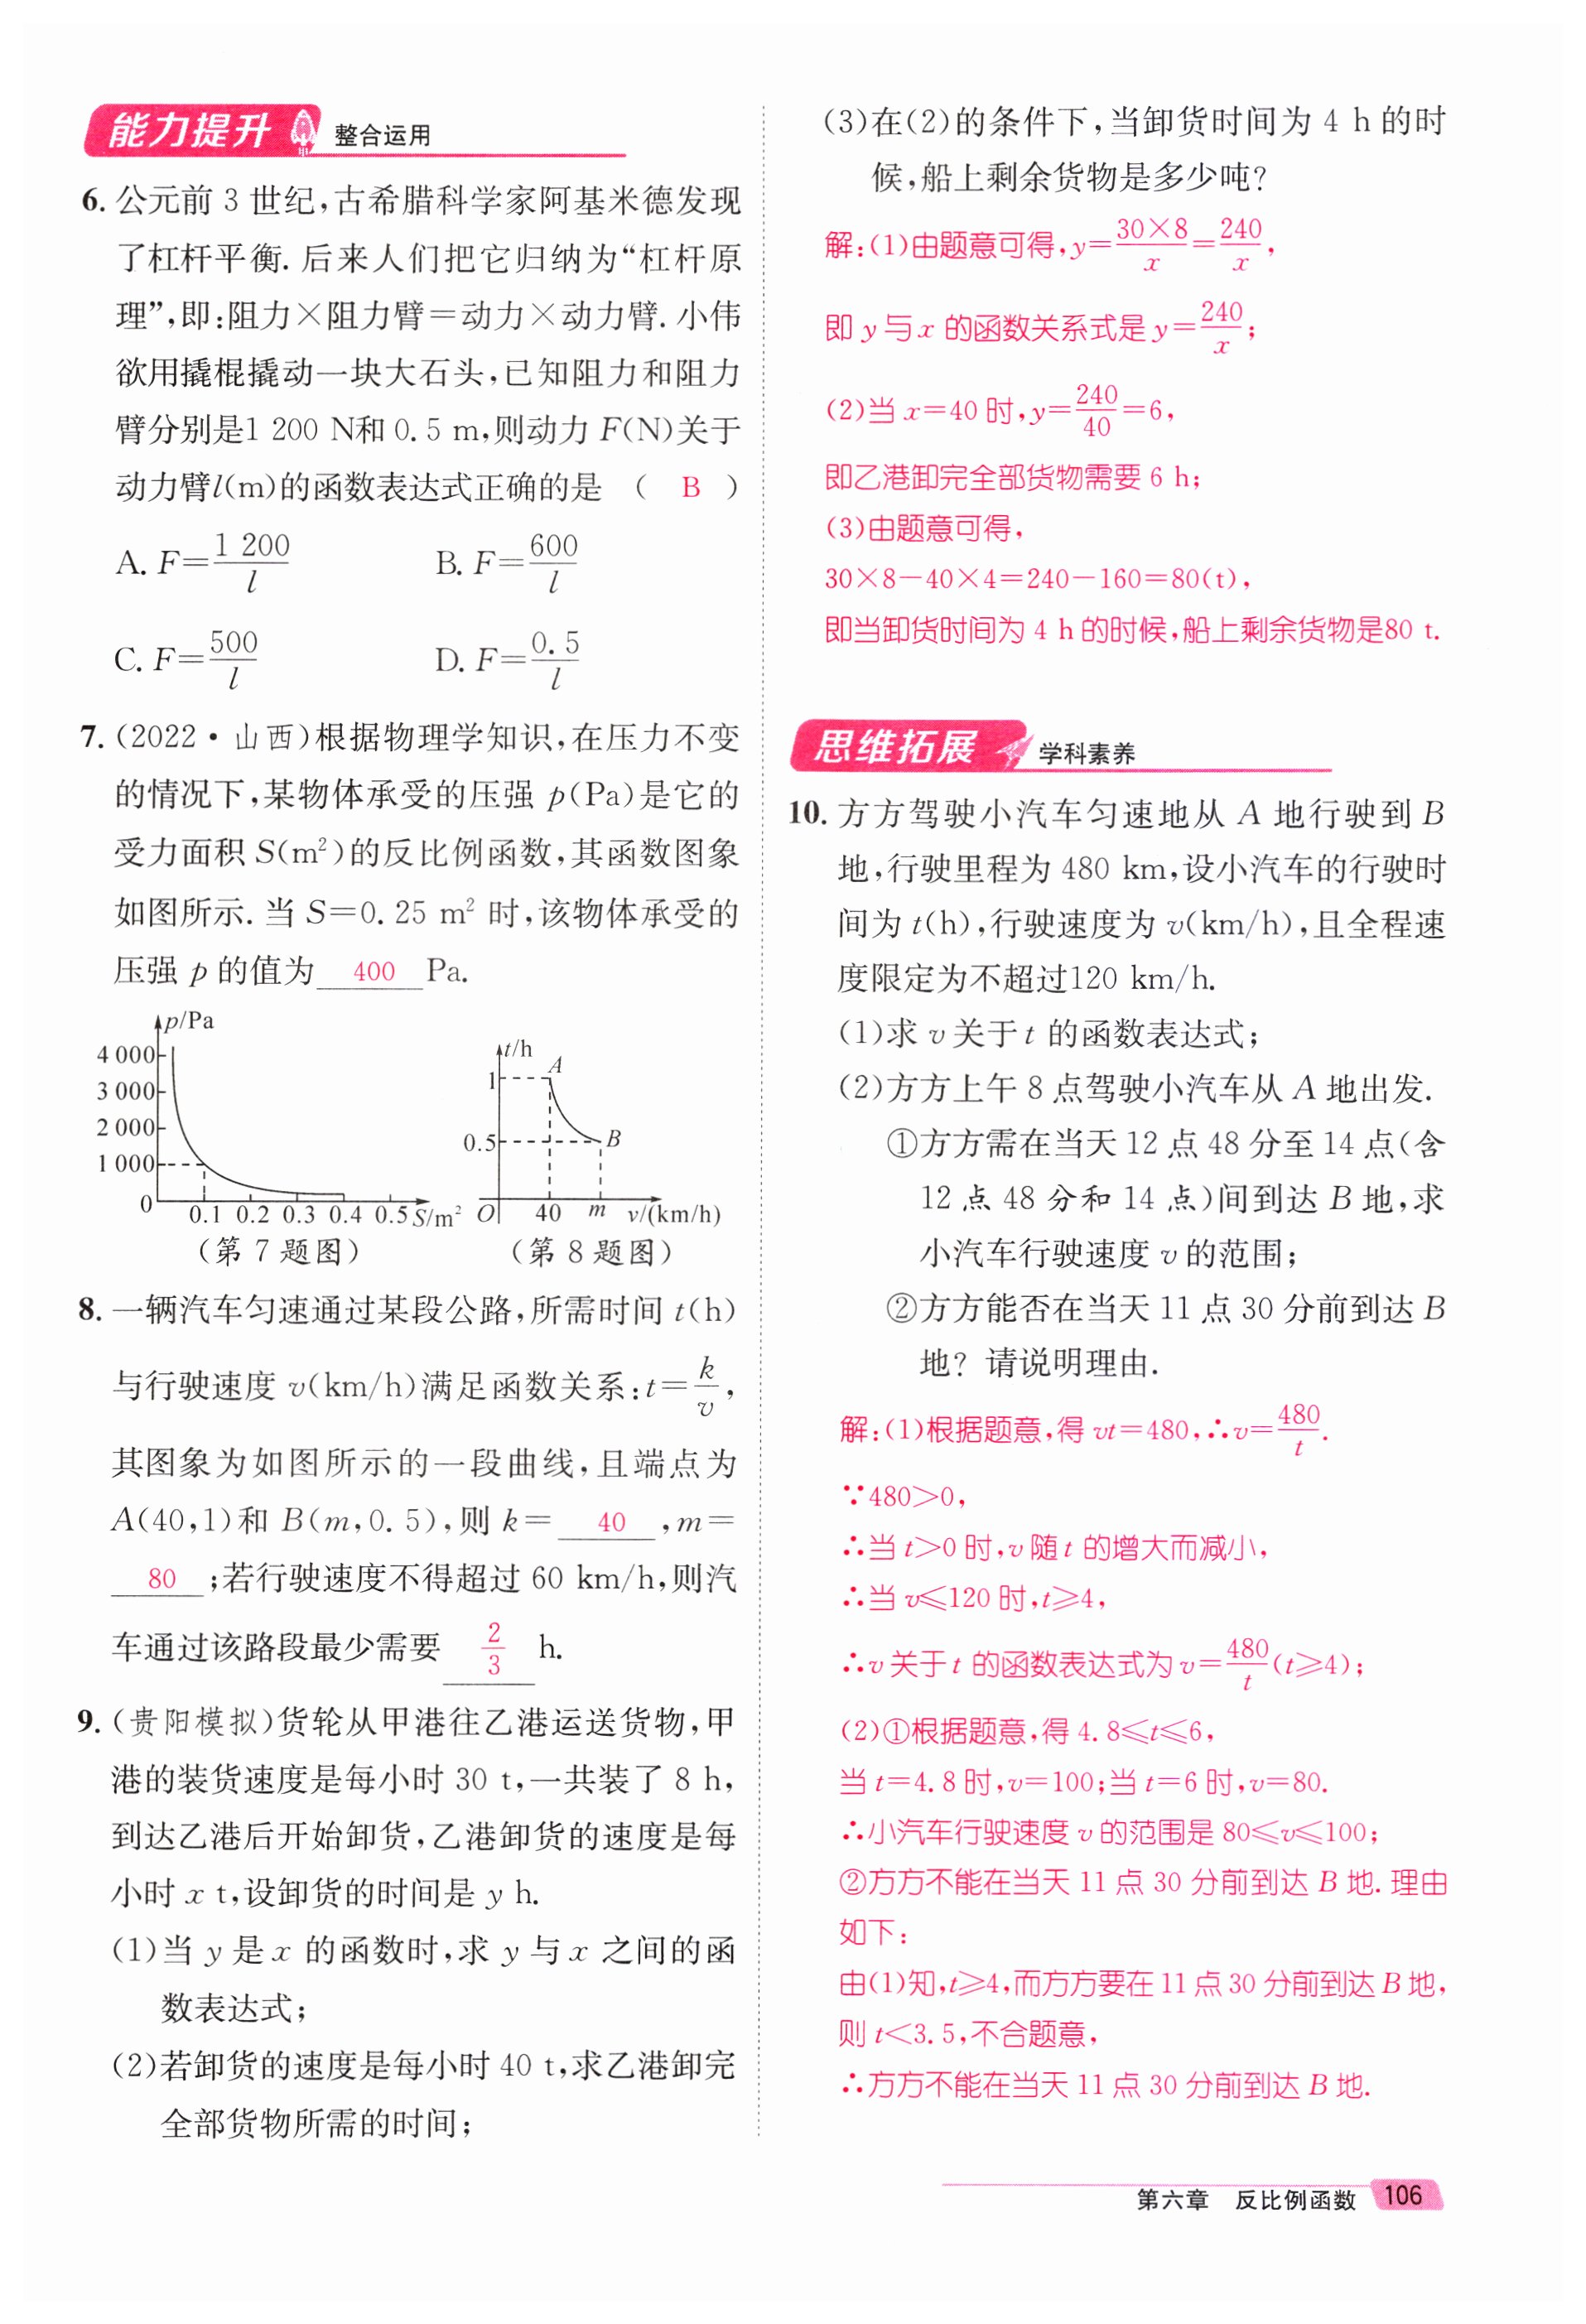 能力提升 整合运用
6. 公元前 3 世纪,古希腊科学家阿基米德发现
了杠杆平衡. 后来人们把它归纳为“杠杆原
理”,即:阻力×阻力臂=动力×动力臂. 小伟
欲用撬棍撬动一块大石头,已知阻力和阻力
臂分别是1 200 N和 0. 5 m,则动力 F(N)关于
动力臂l(m)的函数表达式正确的是 ( B )
A. F=1 200/l B. F=600/l
C. F=500/l D. F=0. 5/l
7. (2022·山西)根据物理学知识,在压力不变
的情况下,某物体承受的压强 p(Pa)是它的
受力面积 S(m²)的反比例函数,其函数图象
如图所示. 当 S=0. 25 m² 时,该物体承受的
压强 p 的值为 400 Pa.
p/Pa
4 000
3 000
2 000
1 000
0
0.1 0.2 0.3 0.4 0.5 S/m²
(第 7 题图)
t/h
A
1
0.5
B
O 40 m v/(km/h)
(第 8 题图)
8. 一辆汽车匀速通过某段公路,所需时间 t(h)
与行驶速度 v(km/h)满足函数关系:t=k/v,
其图象为如图所示的一段曲线,且端点为
A(40,1)和 B(m,0. 5),则 k= 40 ,m=
80 ;若行驶速度不得超过 60 km/h,则汽
车通过该路段最少需要 2/3 h.
9. (贵阳模拟)货轮从甲港往乙港运送货物,甲
港的装货速度是每小时 30 t,一共装了 8 h,
到达乙港后开始卸货,乙港卸货的速度是每
小时 x t,设卸货的时间是 y h.
(1)当 y 是 x 的函数时,求 y 与 x 之间的函
数表达式;
(2)若卸货的速度是每小时 40 t,求乙港卸完
全部货物所需的时间;
(3)在(2)的条件下,当卸货时间为 4 h 的时
候,船上剩余货物是多少吨?
解:(1)由题意可得,y=30×8/x=240/x,
即 y 与 x 的函数关系式是 y=240/x;
(2)当 x=40 时,y=240/40=6,
即乙港卸完全部货物需要 6 h;
(3)由题意可得,
30×8-40×4=240-160=80(t),
即当卸货时间为 4 h 的时候,船上剩余货物是80 t.
思维拓展 学科素养
10. 方方驾驶小汽车匀速地从 A 地行驶到 B
地,行驶里程为 480 km,设小汽车的行驶时
间为 t(h),行驶速度为 v(km/h),且全程速
度限定为不超过120 km/h.
(1)求 v 关于 t 的函数表达式;
(2)方方上午 8 点驾驶小汽车从 A 地出发.
①方方需在当天 12 点 48 分至 14 点(含
12 点 48 分和 14 点)间到达 B 地,求
小汽车行驶速度 v 的范围;
②方方能否在当天 11 点 30 分前到达 B
地? 请说明理由.
解:(1)根据题意,得 vt=480,∴v=480/t.
∵480>0,
∴当 t>0 时,v 随 t 的增大而减小,
∴当 v≤120 时,t≥4,
∴v 关于 t 的函数表达式为 v=480/t(t≥4);
(2)①根据题意,得 4. 8≤t≤6,
当 t=4. 8 时,v=100;当 t=6 时,v=80.
∴小汽车行驶速度 v 的范围是 80≤v≤100;
②方方不能在当天 11 点 30 分前到达 B 地. 理由
如下:
由(1)知,t≥4,而方方要在 11 点 30 分前到达 B 地,
则 t<3. 5,不合题意,
∴方方不能在当天 11 点 30 分前到达 B 地.
第六章 反比例函数 106